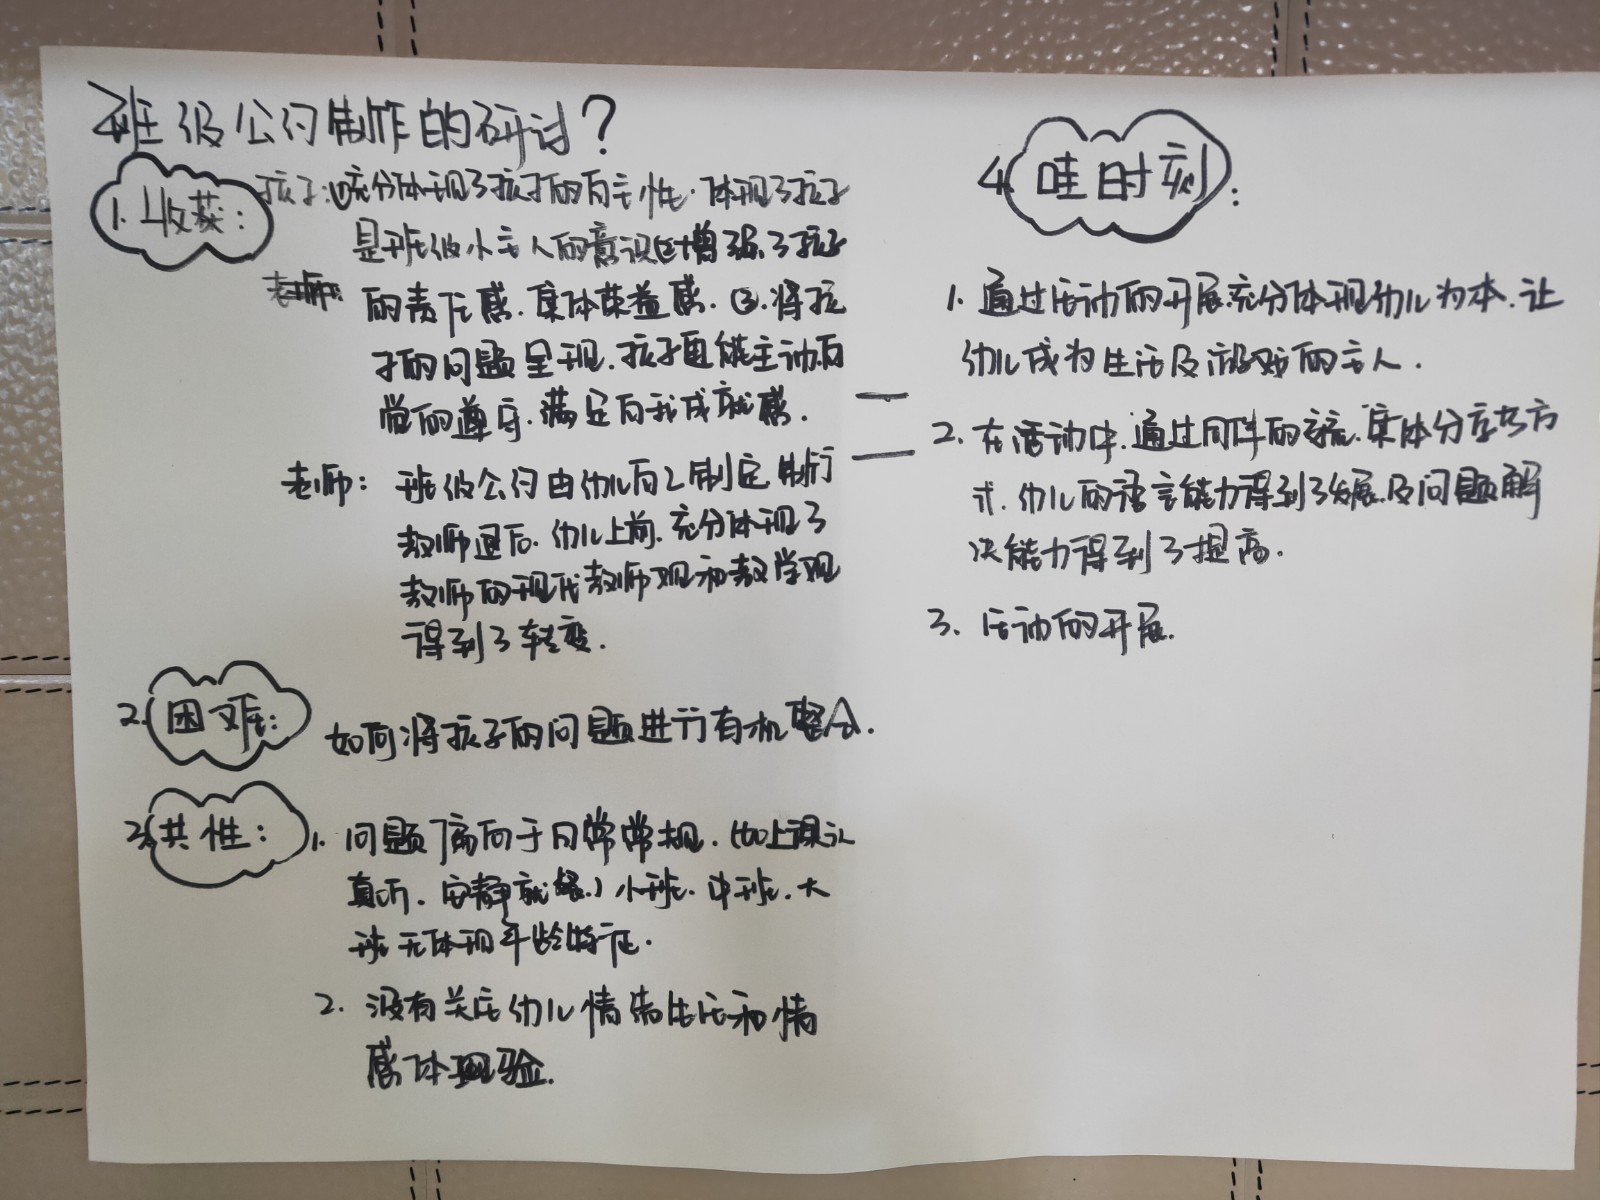 班级公约制作的研讨?
1.收获:
孩子:①充分体现了孩子的自主性.体现了孩子
是班级小主人的意识②增强了孩子
的责任感.集体荣益感.③.将孩
子的问题呈现.孩子更能主动自
觉的遵守.满足自我成就感.
老师: 班级公约由幼儿自己制定、制行
教师退后.幼儿上前.充分体现了
教师的现代教师观和教学观
得到了转变.
2.困难:
如何将孩子的问题进行有机整合.
3.共性:
1.问题偏向于日常常规.(如上课认
真听.安静就餐)小班.中班.大
班无体现年龄特征.
2.没有关注幼儿情绪生活和情
感体验.
4.哇时刻:
1.通过活动的开展.充分体现幼儿为本.让
幼儿成为生活及游戏的主人.
2.在活动中.通过同伴的交流.集体分享等方
式.幼儿的语言能力得到了发展.及问题解
决能力得到了提高.
3、活动的开展.